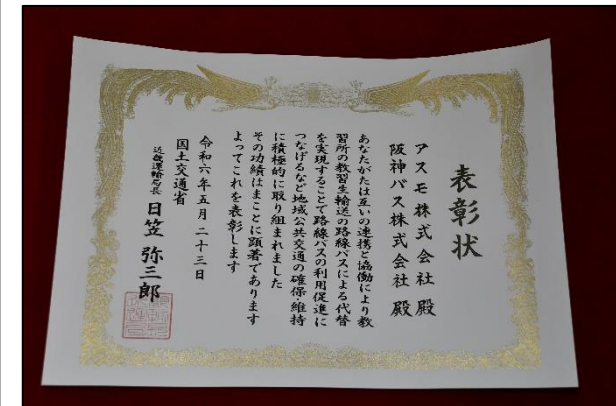 表彰状
アスモ株式会社殿
阪神バス株式会社殿
あなたがたは互いの連携と協働により教
習所の教習生輸送の路線バスによる代替
を実現することで路線バスの利用促進に
つなげるなど地域公共交通の確保・維持
に積極的に取り組まれました
その功績はまことに顕著であります
よってこれを表彰します
令和六年五月二十三日
国土交通省
近畿運輸局長 日笠 弥三郎